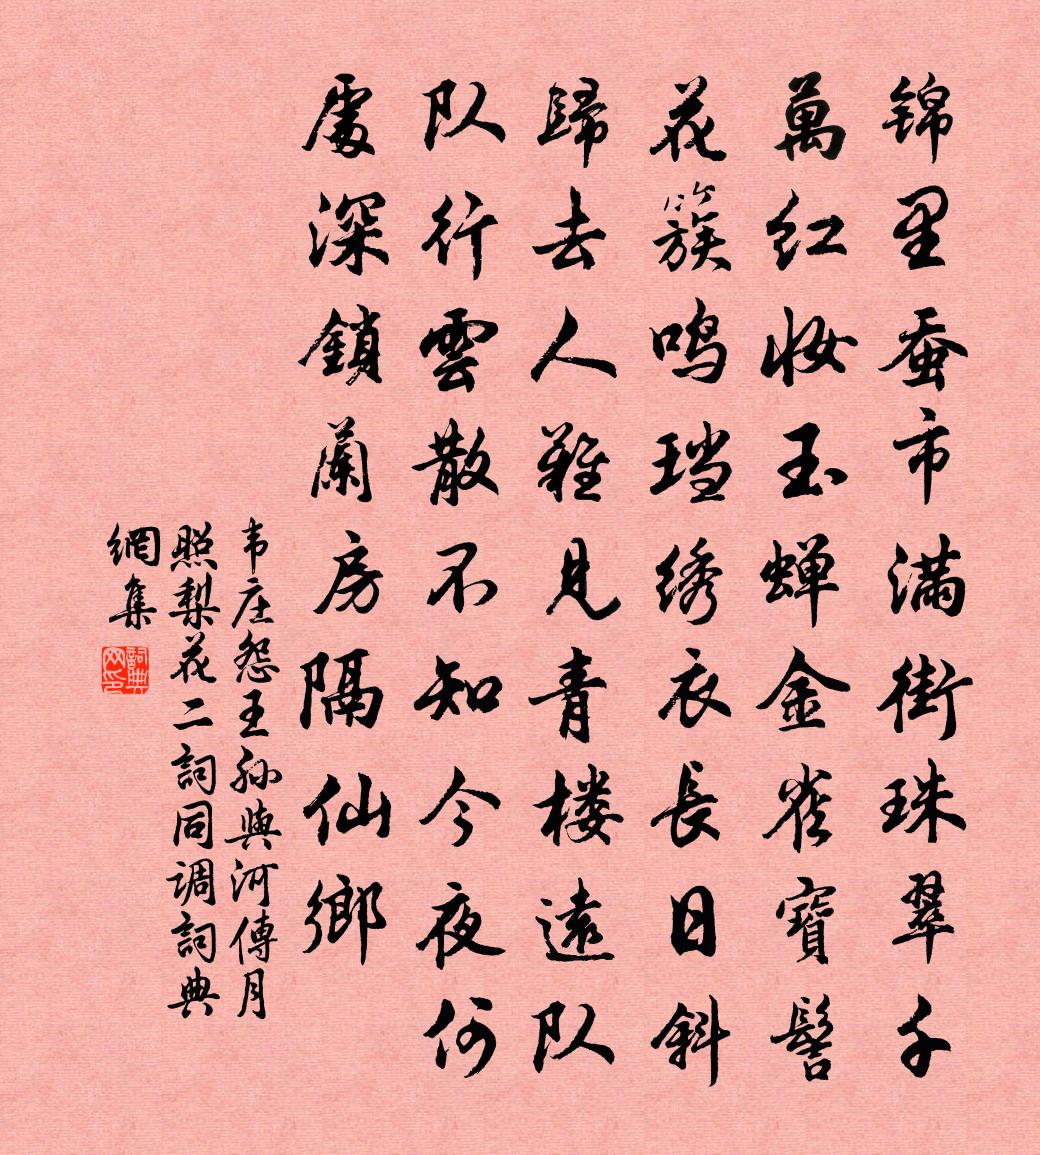 锦里蚕市满街珠翠千
萬红妆玉蝉金雀寶髻
花簇鸣珰绣衣長日斜
歸去人難见青楼遠队
队行雲散不知今夜何
處深鎖蘭房隔仙鄉
韦庄怨王孙與河傳月
照梨花二詞同调詞典
網集
詞典网印